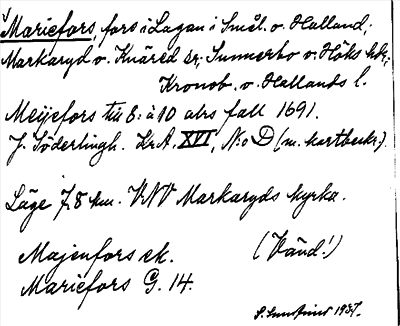 Mariefors, fors i Lagan i Smål. o. Halland;
Markaryd o. Knäred sr, Sunnerbo o. Höks hdr,
Kronob. o. Hallands l.
Meijefors till 8: à 10 alrs fall 1691.
J. Söderlingh. Kr. A. XVI, N:o D (m. kartbeskr.).
Läge 7,8 km. VNV Markaryds kyrka.
Majenfors ek. (Vänd!)
Mariefors G. 14.
1937.